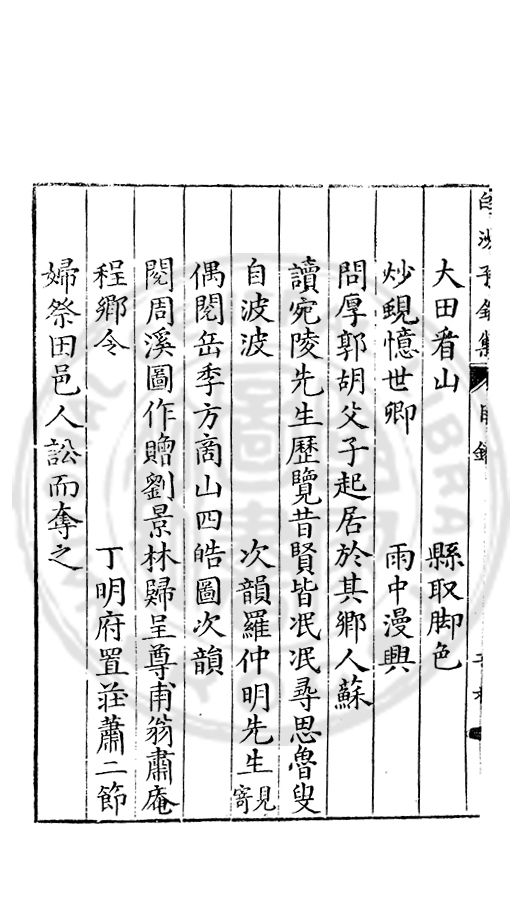 大田看山　縣取脚色
炒蜆憶世卿　雨中漫興
問厚郭胡父子起居於其鄉人蘇
讀宛陵先生歷覽昔賢皆泯泯尋思魯叟
自波波　次韻羅仲明先生見寄
偶閱岳季方商山四皓圖次韻
閱周溪圖作贈劉景林歸呈尊甫翁肅庵
程鄉令　丁明府置莊蕭二節
婦祭田邑人訟而奪之